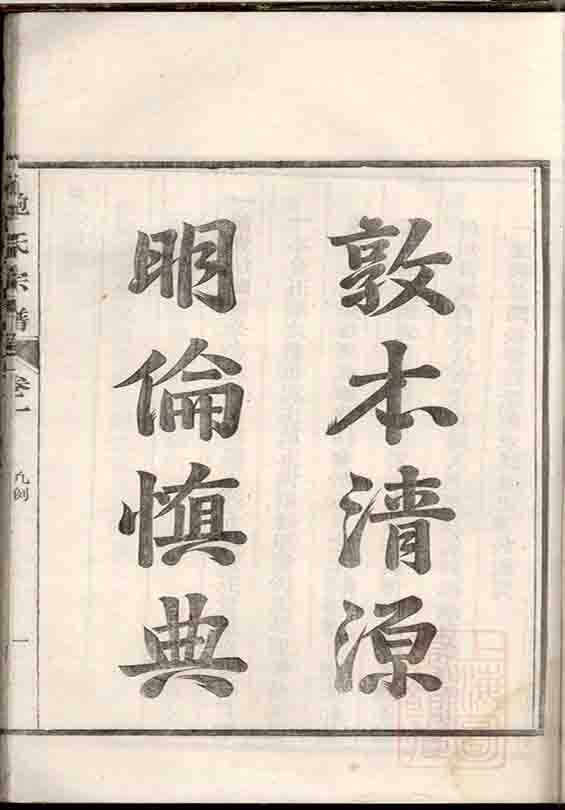 敦本清源
明倫慎典
鮑氏宗譜
卷一
凡例
一